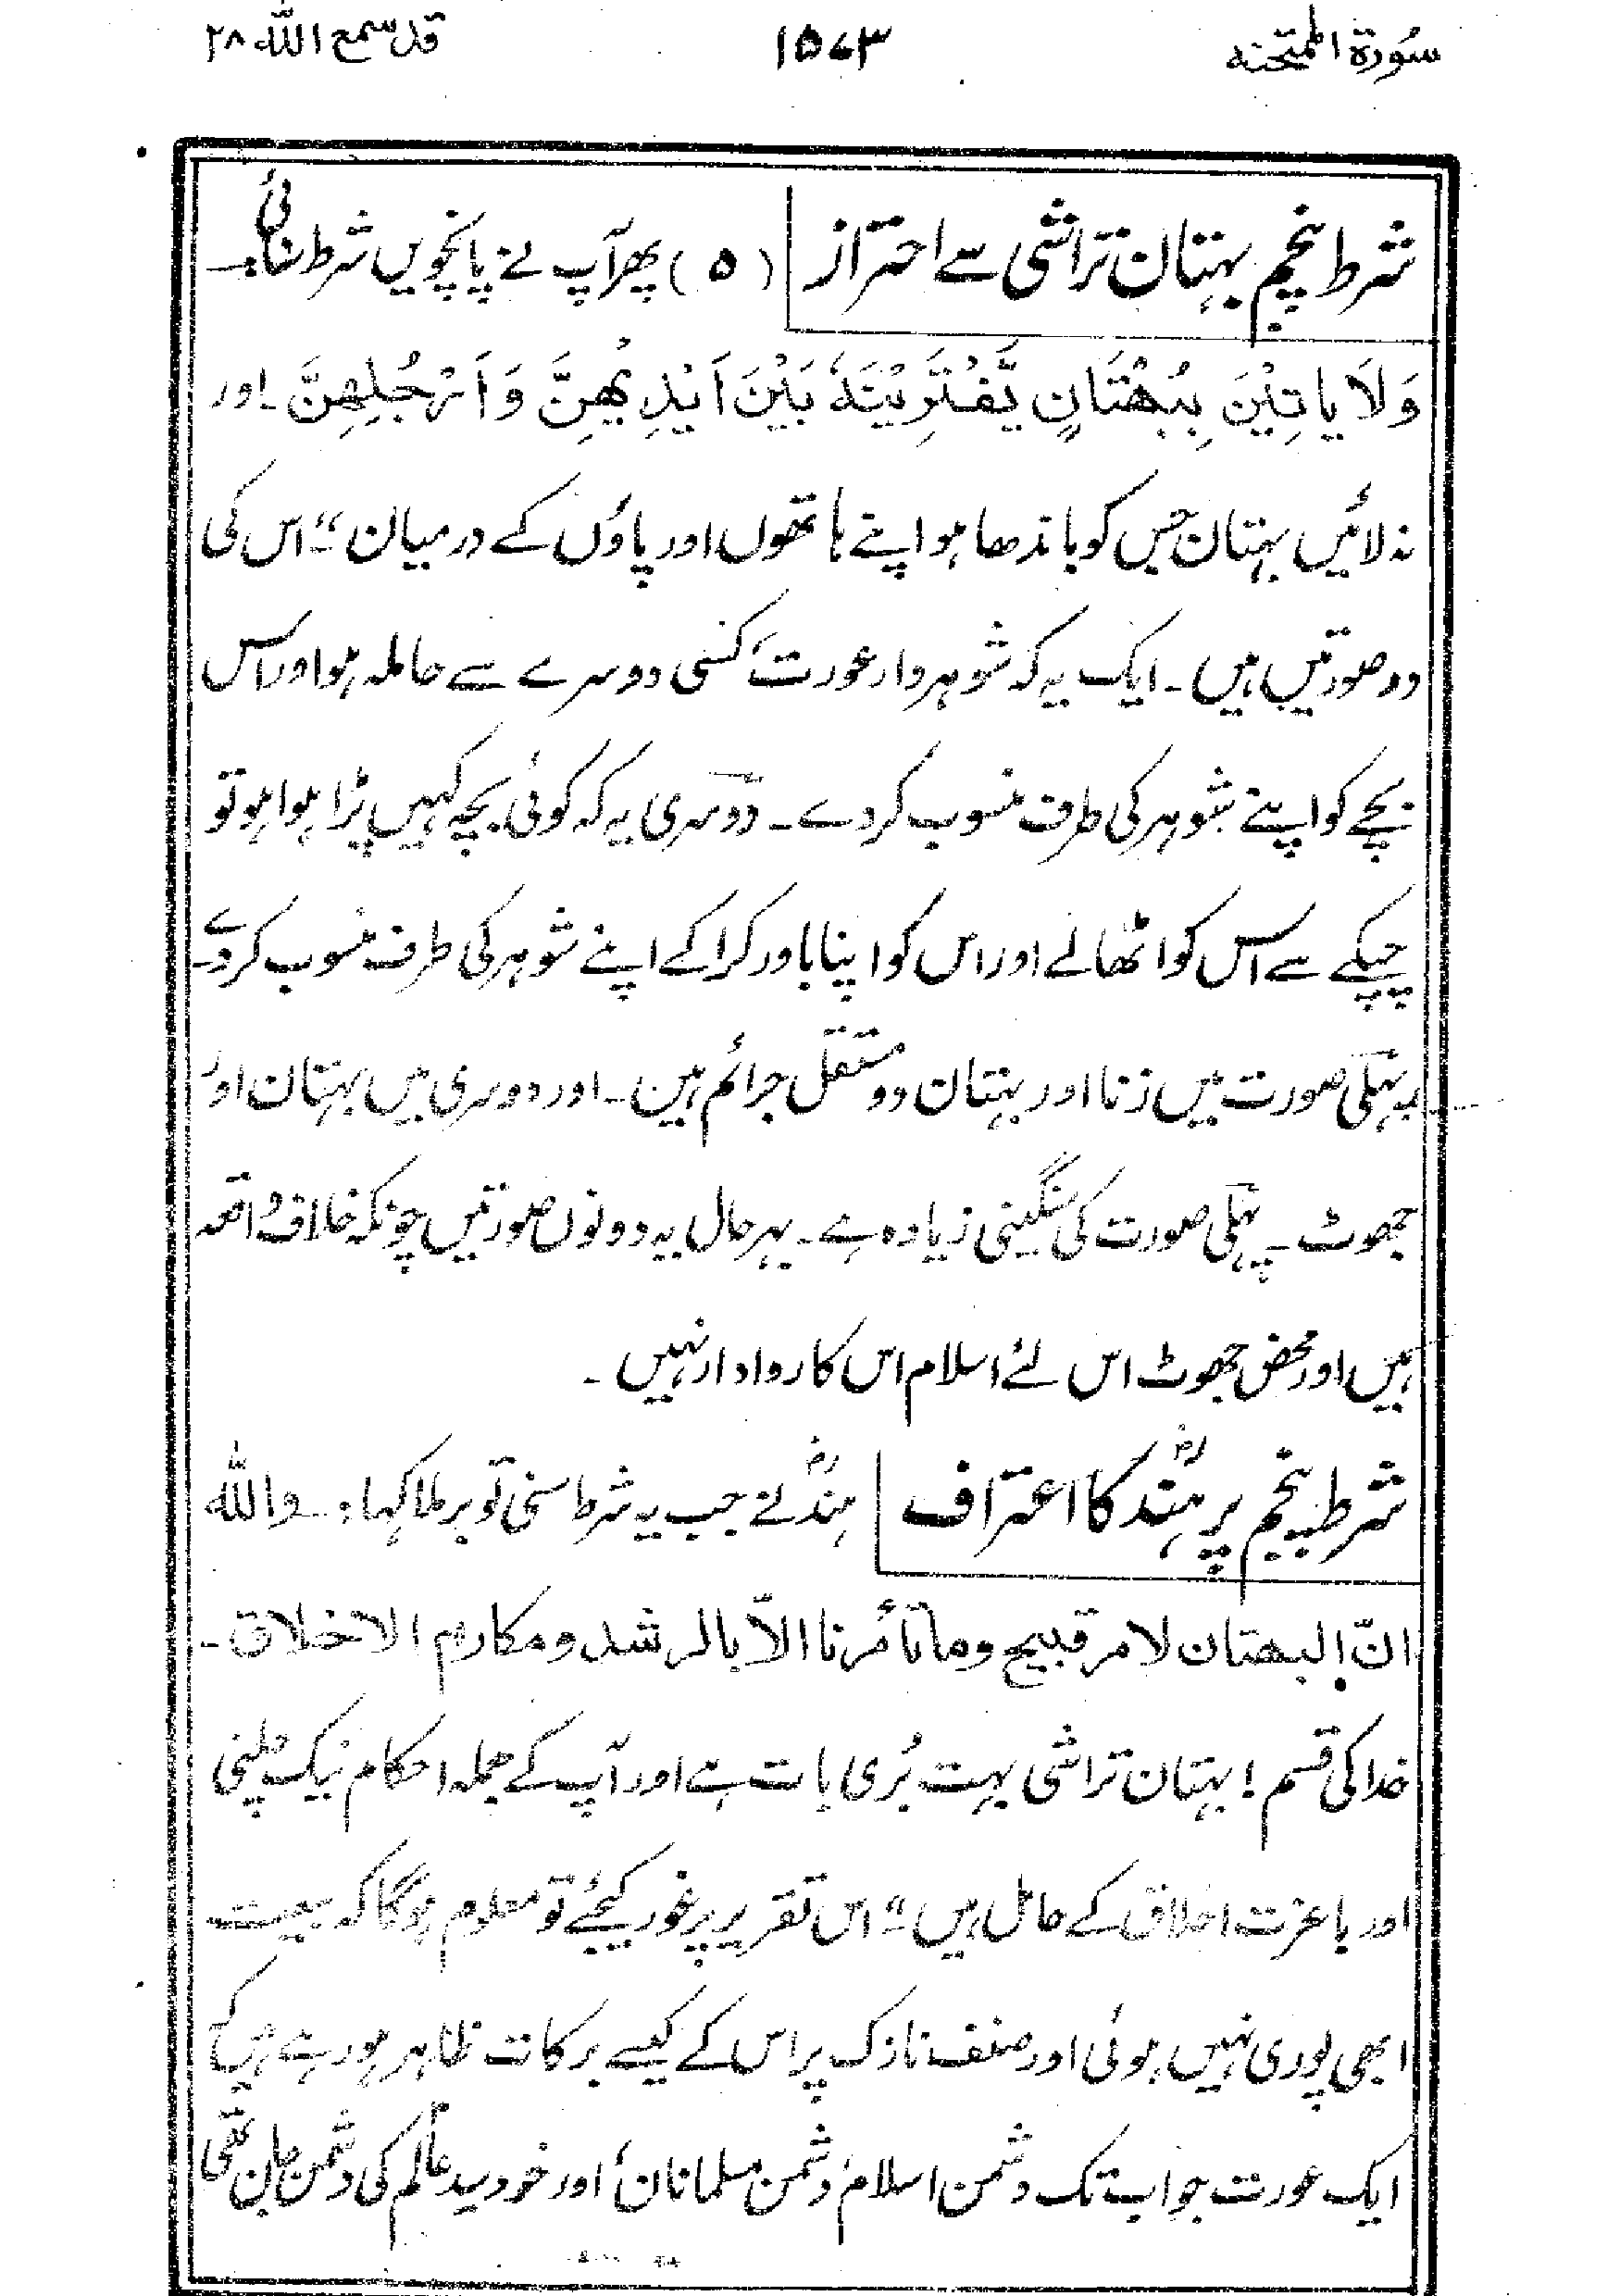 سُورۃ الممتحنہ ۱۵۷۳ قد سمع اللہ ۲۸
شرط پنجم بہتان تراشی سے احتراز (۵) پھر آپ نے پانچویں شرط سنائی۔
وَلَا یاتِیْنَ بِبُهْتَانٍ یَّفْتَرِیْنَهٗ بَیْنَ اَیْدِیْهِنَّ وَاَرْجُلِهِنَّ ۔ اور
نہ لائیں بہتان جس کو باندھا ہو اپنے ہاتھوں اور پاؤں کے درمیان“۔ اس کی
دو صورتیں ہیں۔ ایک یہ کہ شوہر دار عورت، کسی دوسرے سے حاملہ ہو اور اس
بچے کو اپنے شوہر کی طرف منسوب کر دے۔ دوسری یہ کہ کوئی بچہ کہیں پڑا ہوا ہو تو
چپکے سے اس کو اٹھا لے اور اس کو اپنا باور کرا کے اپنے شوہر کی طرف منسوب کر دے۔
پہلی صورت میں زنا اور بہتان دو مستقل جرائم ہیں۔ اور دوسری میں بہتان اور
جھوٹ۔ پہلی صورت کی سنگینی زیادہ ہے۔ بہر حال یہ دونوں صورتیں چونکہ خلافِ واقعہ
ہیں اور محض جھوٹ اس لئے اسلام اس کا روادار نہیں۔
شرط پنجم پر ہندؓ کا اعتراف ہندؓ نے جب یہ شرط سنی تو برملا کہا: واللہ
انّ البهتان لامر قبیح وما تأمرنا الّا بالرشد ومکارم الاخلاق۔
خدا کی قسم! بہتان تراشی بہت بُری بات ہے اور آپ کے جملہ احکام نیک چلنی
اور باعزت اخلاق کے حامل ہیں“۔ اس تقریر پر غور کیجئے تو معلوم ہوگا کہ بیعت
ابھی پوری نہیں ہوئی اور صنف نازک پر اس کے کیسے برکات ظاہر ہو رہے ہیں کہ
ایک عورت جو اب تک دشمن اسلام، دشمن مسلمانان، اور خود سید عالمؐ کی دشمن جان تھی